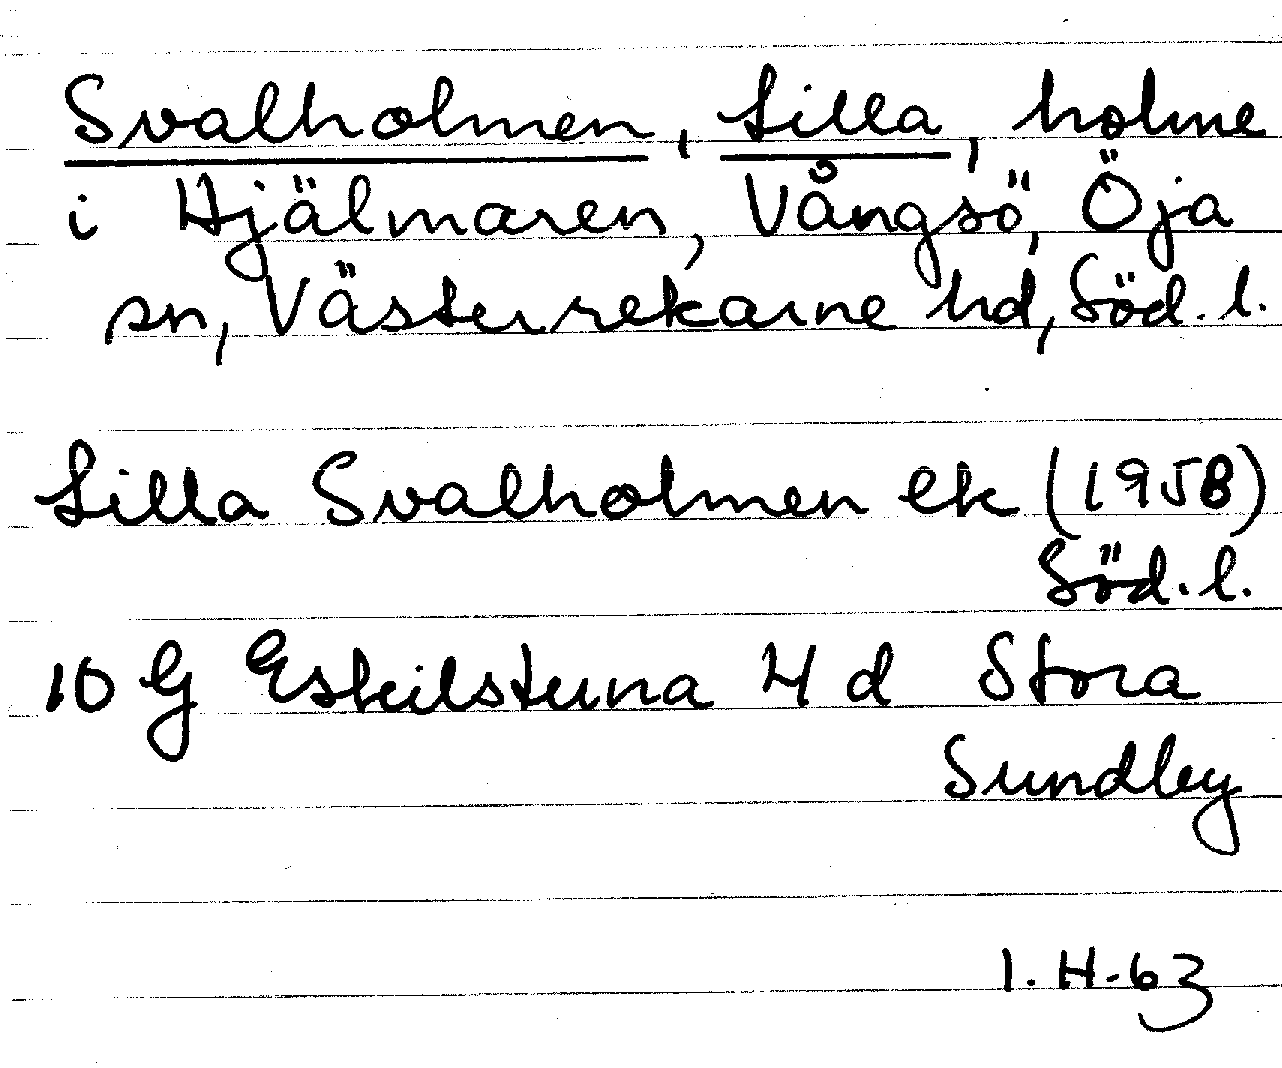 Svalholmen, Lilla, holme
i Hjälmaren, Vångsö, Öja
sn, Västerrekarne hd, Söd. l.
Lilla Svalholmen ek (1958)
Söd. l.
10 G Eskilstuna 4 d Stora
Sundby
I. H-63